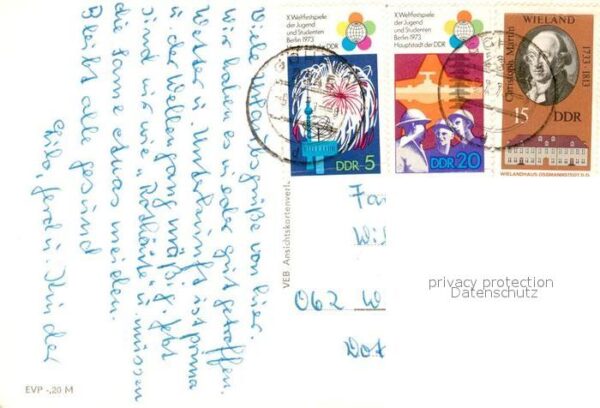 Viele Urlaubsgrüße von hier.
Wir haben es wieder gut getroffen.
Wetter u. Unterkunft ist prima
u. der Wellengang mäßig. Jetzt
sind wir wie „Rothäute" u. müssen
die Sonne etwas meiden.
Bleibt all gesund
Ferd u. Kinder
EVP -,20 M
VEB Ansichtskartenverl
X. Weltfestspiele
der Jugend
und Studenten
Berlin 1973
DDR 5
X. Weltfestspiele
der Jugend
und Studenten
Berlin 1973
Hauptstadt der DDR
DDR 20
WIELAND
Christoph Martin
1733-1813
15
DDR
WIELANDHAUS OSSMANNSTEDT
Fa
Wi
062 W
Dot
privacy protection
Datenschutz